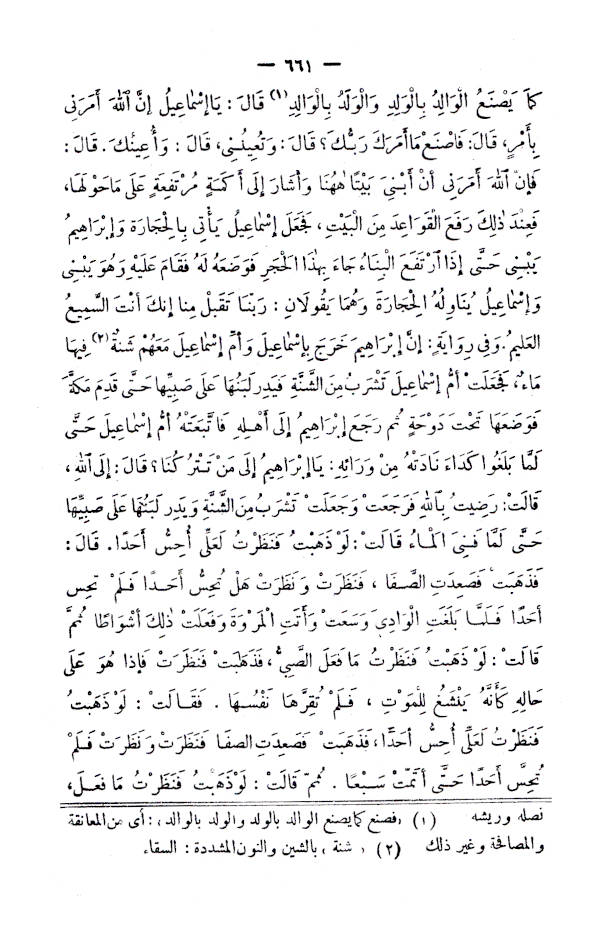 — ٦٦١ —
كَمَا يَصْنَعُ الْوَالِدُ بِالْوَلَدِ وَالْوَلَدُ بِالْوَالِدِ (١) قَالَ : يَا إِسْمَاعِيلُ إِنَّ اللهَ أَمَرَنِى
بِأَمْرٍ، قَالَ: فَاصْنَعْ مَا أَمَرَكَ رَبُّكَ؟ قَالَ : وَتُعِينُنِى، قَالَ : وَأُعِينُكَ. قَالَ :
فَإِنَّ اللهَ أَمَرَنِى أَنْ أَبْنِىَ بَيْتًا هٰهُنَا وَأَشَارَ إِلَى أَكَمَةٍ مُرْتَفِعَةٍ عَلَى مَا حَوْلَهَا،
فَعِنْدَ ذٰلِكَ رَفَعَ الْقَوَاعِدَ مِنَ الْبَيْتِ، فَجَعَلَ إِسْمَاعِيلُ يَأْتِى بِالْحِجَارَةِ وَإِبْرَاهِيمُ
يَبْنِى حَتَّى إِذَا ارْتَفَعَ الْبِنَاءُ جَاءَ بِهٰذَا الْحَجَرِ فَوَضَعَهُ لَهُ فَقَامَ عَلَيْهِ وَهُوَ يَبْنِى
وَإِسْمَاعِيلُ يُنَاوِلُهُ الْحِجَارَةَ وَهُمَا يَقُولَانِ : رَبَّنَا تَقَبَّلْ مِنَّا إِنَّكَ أَنْتَ السَّمِيعُ
الْعَلِيمُ. وَفِى رِوَايَةٍ : إِنَّ إِبْرَاهِيمَ خَرَجَ بِإِسْمَاعِيلَ وَأُمِّ إِسْمَاعِيلَ مَعَهُمْ شَنَّةٌ (٢) فِيهَا
مَاءٌ، فَجَعَلَتْ أُمُّ إِسْمَاعِيلَ تَشْرَبُ مِنَ الشَّنَّةِ فَيَدِرُّ لَبَنُهَا عَلَى صَبِيِّهَا حَتَّى قَدِمَ مَكَّةَ
فَوَضَعَهَا تَحْتَ دَوْحَةٍ ثُمَّ رَجَعَ إِبْرَاهِيمُ إِلَى أَهْلِهِ فَاتَّبَعَتْهُ أُمُّ إِسْمَاعِيلَ حَتَّى
لَمَّا بَلَغُوا كَدَاءَ نَادَتْهُ مِنْ وَرَائِهِ : يَا إِبْرَاهِيمُ إِلَى مَنْ تَتْرُكُنَا؟ قَالَ : إِلَى اللهِ،
قَالَتْ: رَضِيتُ بِاللهِ فَرَجَعَتْ وَجَعَلَتْ تَشْرَبُ مِنَ الشَّنَّةِ وَيَدِرُّ لَبَنُهَا عَلَى صَبِيِّهَا
حَتَّى لَمَّا فَنِىَ الْمَاءُ قَالَتْ : لَوْ ذَهَبْتُ فَنَظَرْتُ لَعَلِّى أُحِسُّ أَحَدًا. قَالَ :
فَذَهَبَتْ فَصَعِدَتِ الصَّفَا ، فَنَظَرَتْ وَنَظَرَتْ هَلْ تُحِسُّ أَحَدًا فَلَمْ تُحِسَّ
أَحَدًا فَلَمَّا بَلَغَتِ الْوَادِىَ وَسَعَتْ وَأَتَتِ الْمَرْوَةَ وَفَعَلَتْ ذٰلِكَ أَشْوَاطًا ثُمَّ
قَالَتْ : لَوْ ذَهَبْتُ فَنَظَرْتُ مَا فَعَلَ الصَّبِىُّ، فَذَهَبَتْ فَنَظَرَتْ فَإِذَا هُوَ عَلَى
حَالِهِ كَأَنَّهُ يَنْشَغُ لِلْمَوْتِ ، فَلَمْ تُقِرَّهَا نَفْسُهَا . فَقَالَتْ : لَوْ ذَهَبْتُ
فَنَظَرْتُ لَعَلِّى أُحِسُّ أَحَدًا، فَذَهَبَتْ فَصَعِدَتِ الصَّفَا فَنَظَرَتْ وَنَظَرَتْ فَلَمْ
تُحِسَّ أَحَدًا حَتَّى أَتَمَّتْ سَبْعًا . ثُمَّ قَالَتْ : لَوْ ذَهَبْتُ فَنَظَرْتُ مَا فَعَلَ،
نصله وريشه (١) «فصنع كما يصنع الوالد بالولد والولد بالوالد» : أى من المعانقة
والمصافحة وغير ذلك (٢) «شنة» بالشين والنون المشددة : السقاء